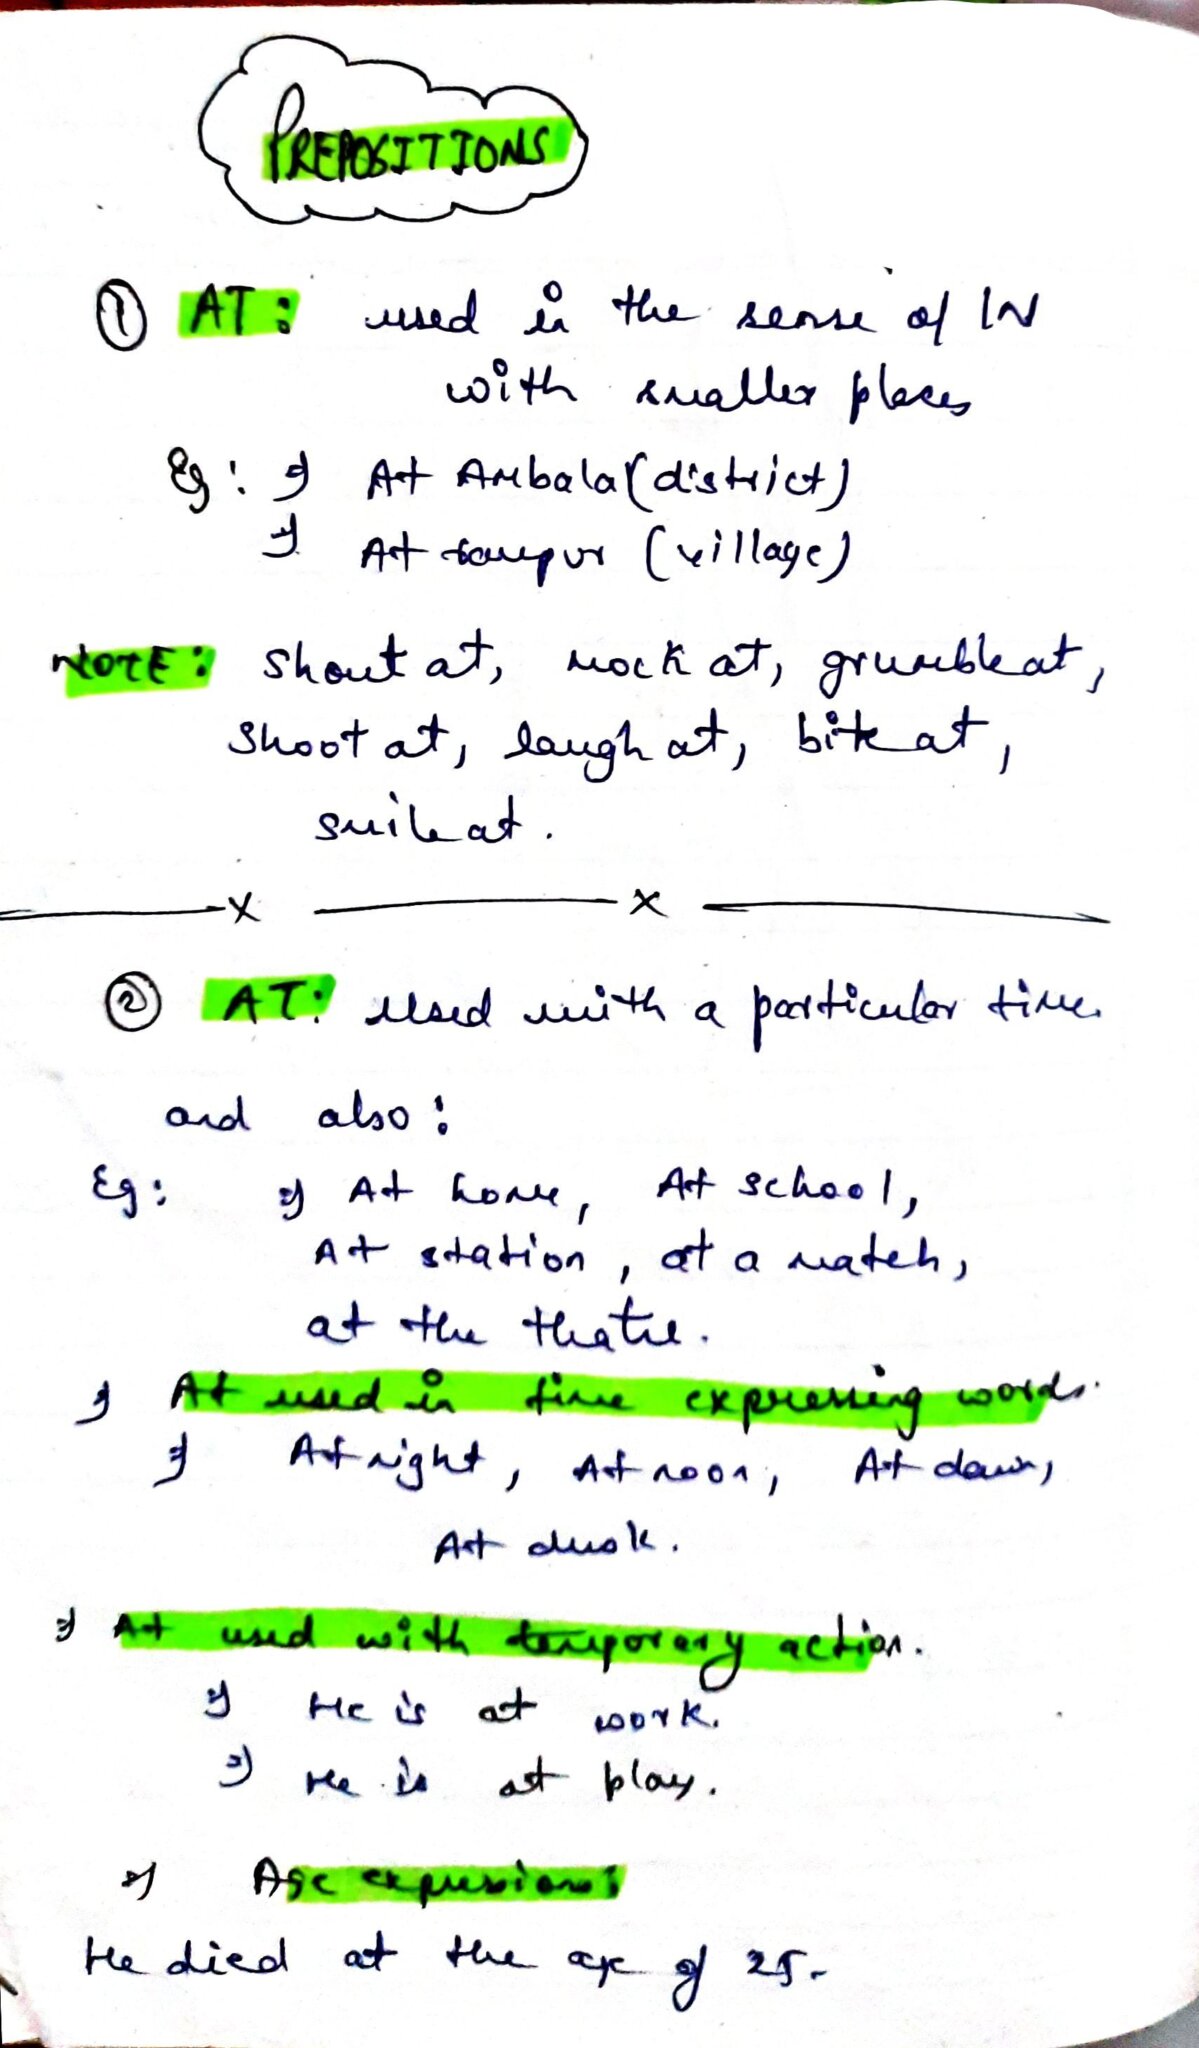 PREPOSITIONS
① AT: used in the sense of IN
with smaller places
Eg: At Ambala (district)
At (village)
NOTE: Shout at, mock at, grumble at,
Shoot at, laugh at, bite at,
smile at.
X X
② AT: Used with a particular time.
and also:
Eg: At home, At school,
At station, at a match,
at the theatre.
At used in time expressing words.
At night, At noon, At dawn,
At dusk.
At used with temporary action.
He is at work.
He is at play.
Age expressions:
He died at the age of 25.